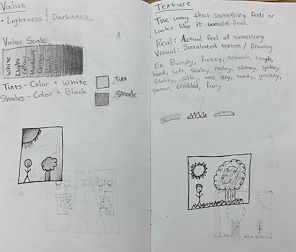 Value
- Lightness & Darkness.
Value Scale
White
Tints - Color + White
Shades - Color + Black
Tint
Shade
Texture
The way that something feels or
looks like it would feel.
Real: Actual feel of something
Visual: Simulated texture / Drawing
Ex. Bumpy, fuzzy, smooth, rough,
hard, soft, scaley, rocky, slimey, spikey,
silky, wet, dry, sandy, grainy,
furry